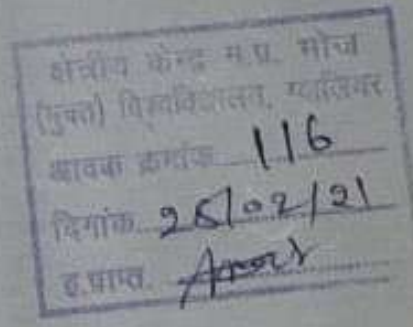 क्षेत्रीय केन्द्र म.प्र. भोज
(मुक्त) विश्वविद्यालय, ग्वालियर
आवक क्रमांक 116
दिनांक 25/02/21
ह.प्राप्त.